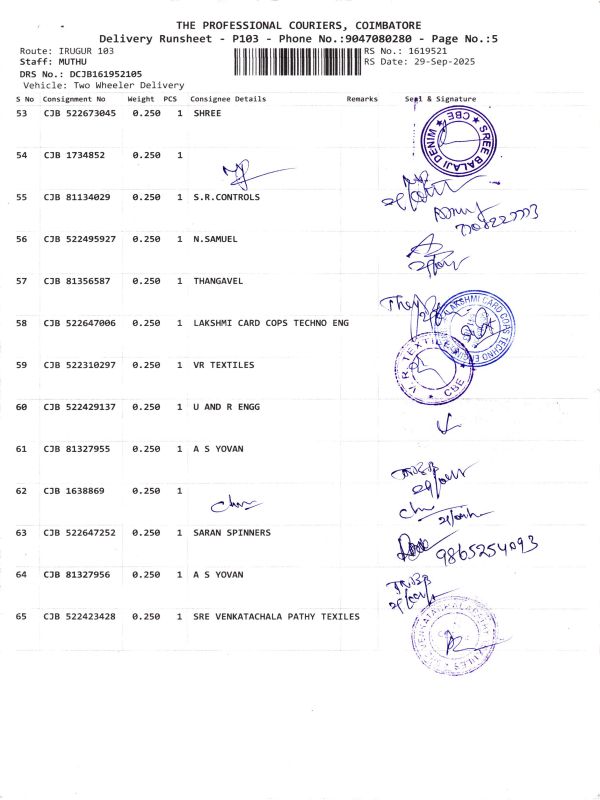 THE PROFESSIONAL COURIERS, COIMBATORE
Delivery Runsheet - P103 - Phone No.:9047080280 - Page No.:5
Route: IRUGUR 103 RS No.: 1619521
Staff: MUTHU RS Date: 29-Sep-2025
DRS No.: DCJB161952105
Vehicle: Two Wheeler Delivery
S No Consignment No Weight PCS Consignee Details Remarks Seal & Signature
53 CJB 522673045 0.250 1 SHREE
SREE BALAJI DENIM CBE
54 CJB 1734852 0.250 1
55 CJB 81134029 0.250 1 S.R.CONTROLS
56 CJB 522495927 0.250 1 N.SAMUEL
57 CJB 81356587 0.250 1 THANGAVEL
58 CJB 522647006 0.250 1 LAKSHMI CARD COPS TECHNO ENG
LAKSHMI CARD COPS TECHNO ENG
59 CJB 522310297 0.250 1 VR TEXTILES
V.R. TEXTILES CBE
60 CJB 522429137 0.250 1 U AND R ENGG
61 CJB 81327955 0.250 1 A S YOVAN
62 CJB 1638869 0.250 1
63 CJB 522647252 0.250 1 SARAN SPINNERS
9865254093
64 CJB 81327956 0.250 1 A S YOVAN
65 CJB 522423428 0.250 1 SRE VENKATACHALA PATHY TEXILES